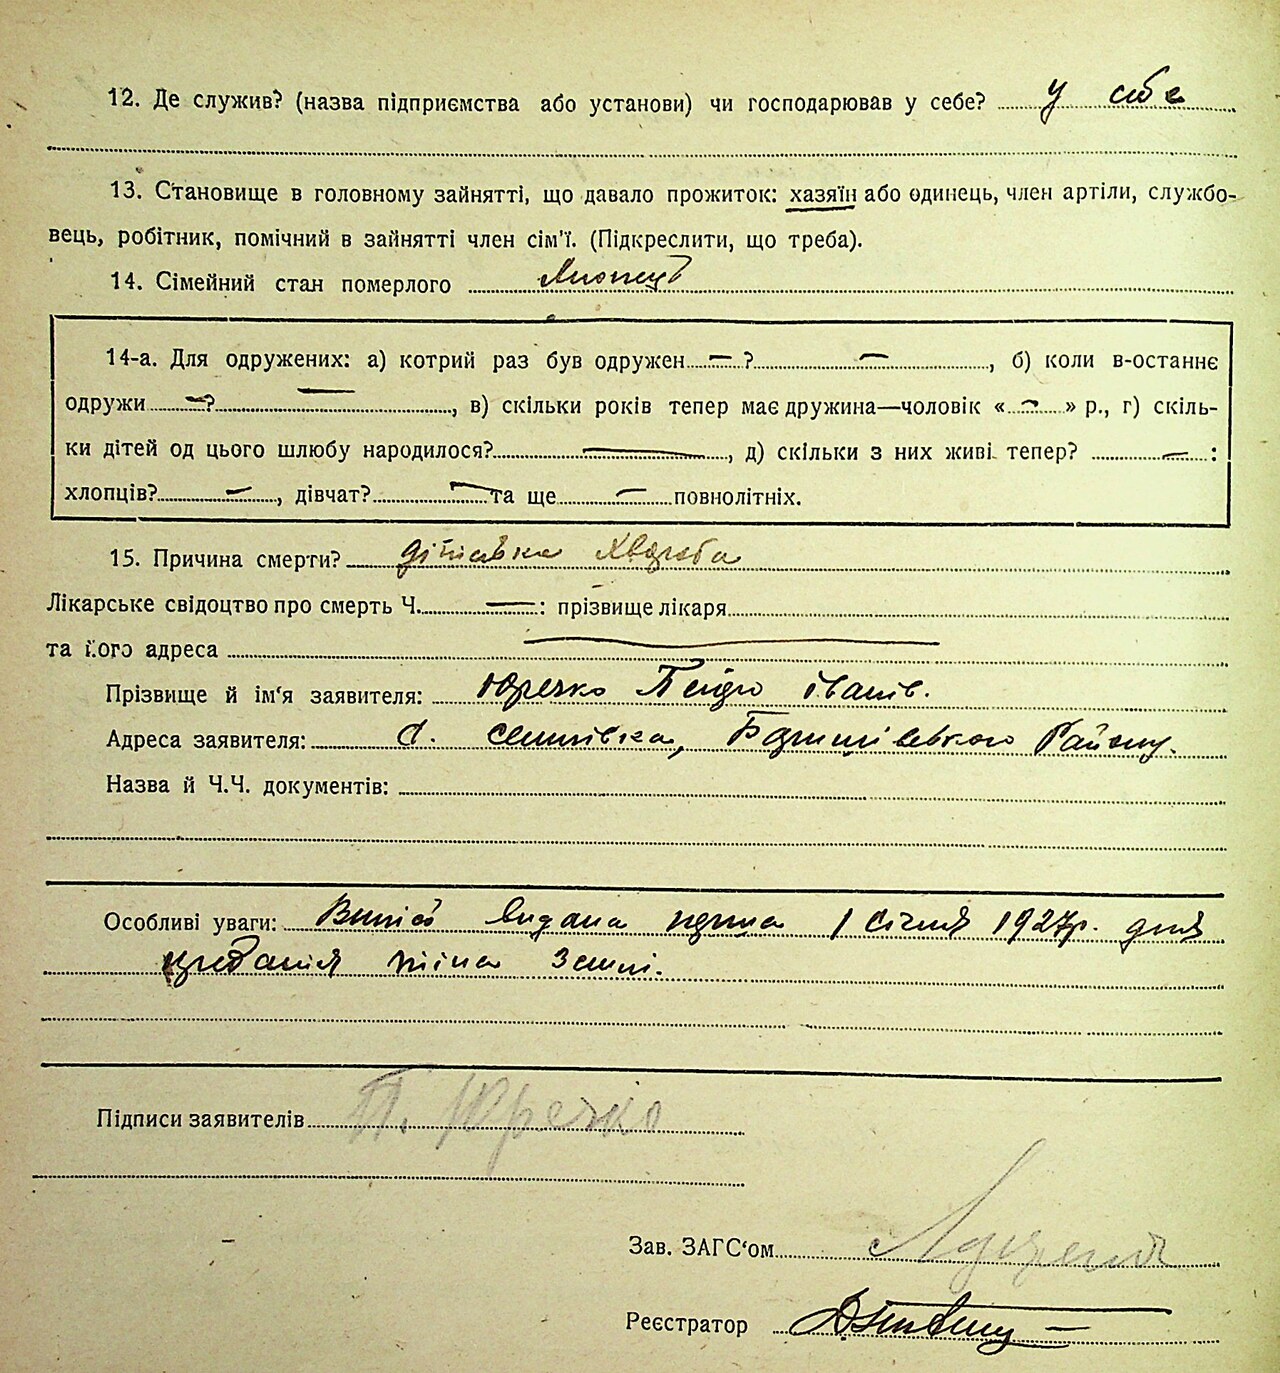 12. Де служив? (назва підприємства або установи) чи господарював у себе? у себе
13. Становище в головному зайнятті, що давало прожиток: хазяїн або одинець, член артіли, службо-
вець, робітник, помічний в зайнятті член сім'ї. (Підкреслити, що треба).
14. Сімейний стан померлого
14-а. Для одружених: а) котрий раз був одружен — ? —, б) коли в-останнє
одружи — ? —, в) скільки років тепер має дружина—чоловік « — » р., г) скіль-
ки дітей од цього шлюбу народилося? —, д) скільки з них живі тепер? — :
хлопців? —, дівчат? — та ще — повнолітніх.
15. Причина смерти? дітська хвороба
Лікарське свідоцтво про смерть Ч. — : прізвище лікаря
та його адреса —
Прізвище й ім'я заявителя: Юречко Іванів.
Адреса заявителя: С. Семпівка, Району.
Назва й Ч.Ч. документів:
Особливі уваги: видана 1 січня 1927р. для
тіла землі.
Підписи заявителів П. Юречко
Зав. ЗАГС'ом
Реєстратор